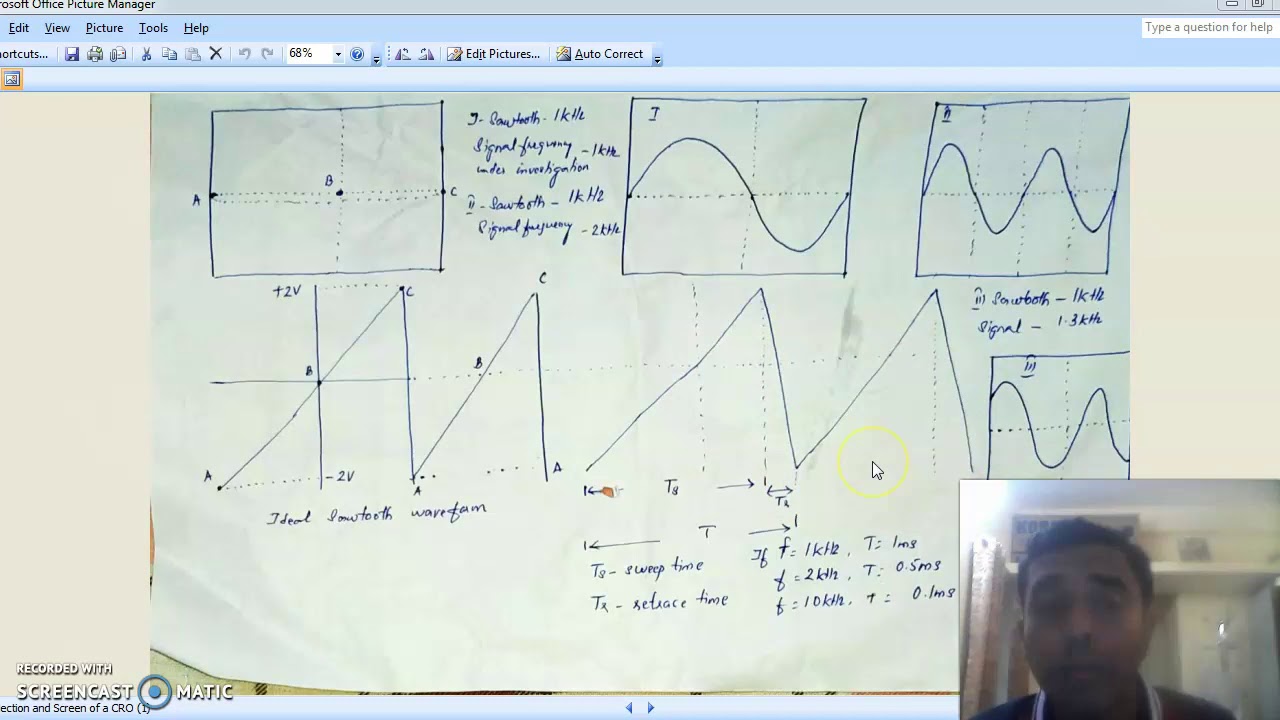 rosoft Office Picture Manager
Edit View Picture Tools Help
Type a question for help
ortcuts...
68%
Edit Pictures...
Auto Correct
I - Sawtooth - 1kHz
Signal frequency - 1kHz
under investigation
II - Sawtooth - 1kHz
Signal frequency - 2kHz
A B C
I
II
+2V
C
B
A
-2V
C
B
A
A
Ideal Sawtooth waveform
III Sawtooth - 1kHz
Signal - 1.3kHz
III
Ts
Tr
T
Ts - sweep time
Tr - retrace time
If f = 1kHz, T = 1ms
f = 2kHz, T = 0.5ms
f = 10kHz, T = 0.1ms
RECORDED WITH
SCREENCAST MATIC
ection and Screen of a CRO (1)